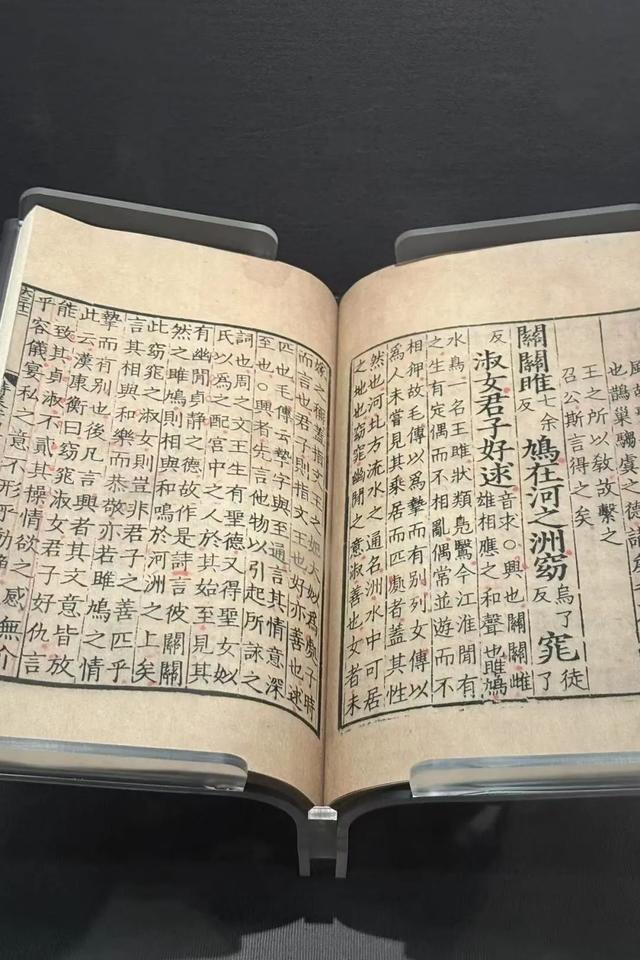 也鵲巢騶虞之德諸
王之所以教故繫之
召公斯言得之矣
關關雎七余反鳩在河之洲窈烏了反窕徒了
反淑女君子好逑音求○興也關關雌
雄相應之和聲也雎鳩
水鳥一名王雎狀類鳧鷖今江淮間有
之生有定偶而不相亂偶常並遊而不
相狎故毛傳以爲摯而有別列女傳以
爲人未嘗見其乘居而匹處者蓋其性
然也河北方流水之通名洲水中可居
之地也窈窕幽閒之意淑善也女者未
嫁之稱蓋指文王之妃大姒爲處子時
而言也君子則指文王也好亦善也逑
匹也毛傳云摯字與至通言其情意深
至也○興者先言他物以引起所詠之
詞也周之文王生有聖德又得聖女姒
氏以爲之配宮中之人於其始至見其
有幽閒貞靜之德故作是詩言彼關關
然之雎鳩則相與和鳴於河洲之上矣
此窈窕之淑女則豈非君子之善匹乎
言其相與和樂而恭敬亦若雎鳩之情
摯而有別也後凡言興者其文意皆放
此云漢康衡曰窈窕淑女君子好仇言
能致其貞淑不貳其操情欲之感無介
乎容儀宴私之意不形乎動